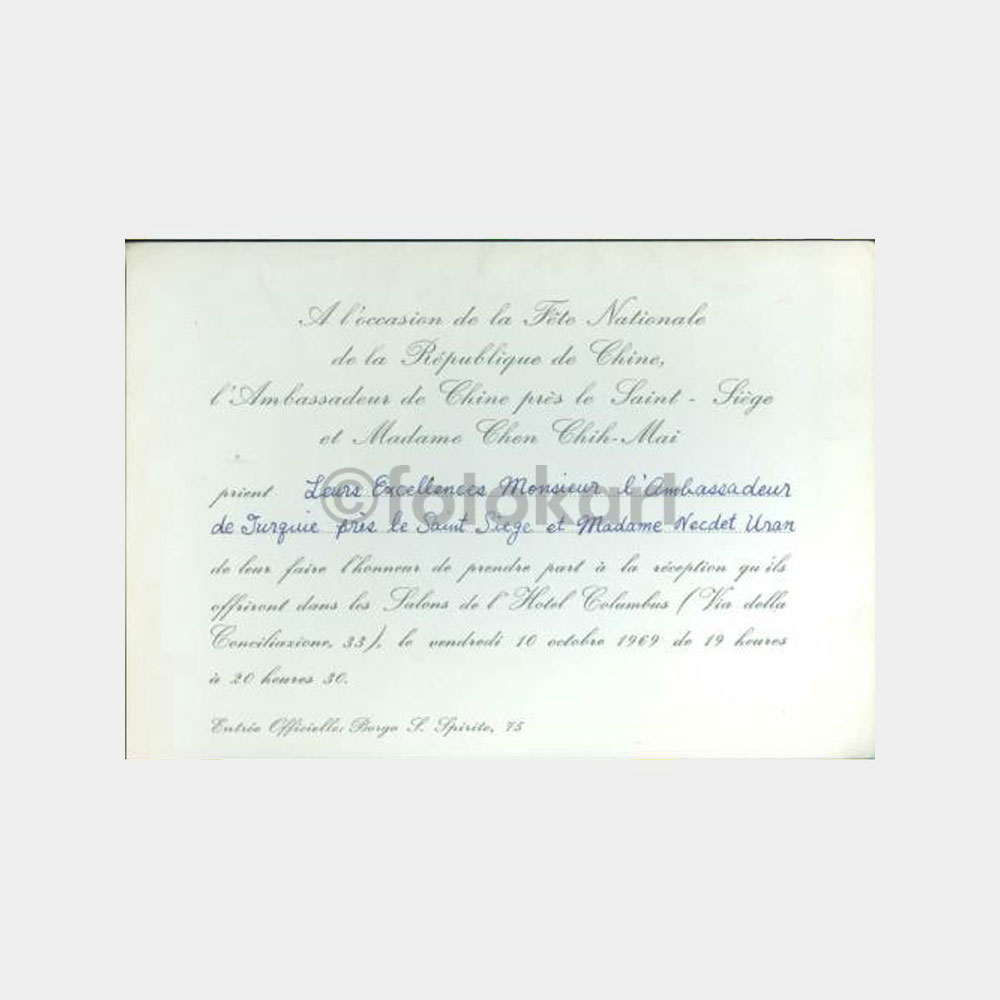 A l'occasion de la Fête Nationale
de la République de Chine,
l'Ambassadeur de Chine près le Saint - Siège
et Madame Chen Chih-Mai
©fotokart
prient Leurs Excellences Monsieur l'Ambassadeur
de Turquie près le Saint Siège et Madame Necdet Uran
de leur faire l'honneur de prendre part à la réception qu'ils
offriront dans les Salons de l'Hotel Columbus (Via della
Conciliazione, 33), le vendredi 10 octobre 1969 de 19 heures
à 20 heures 30.
Entrée Officielle: Borgo S. Spirito, 75